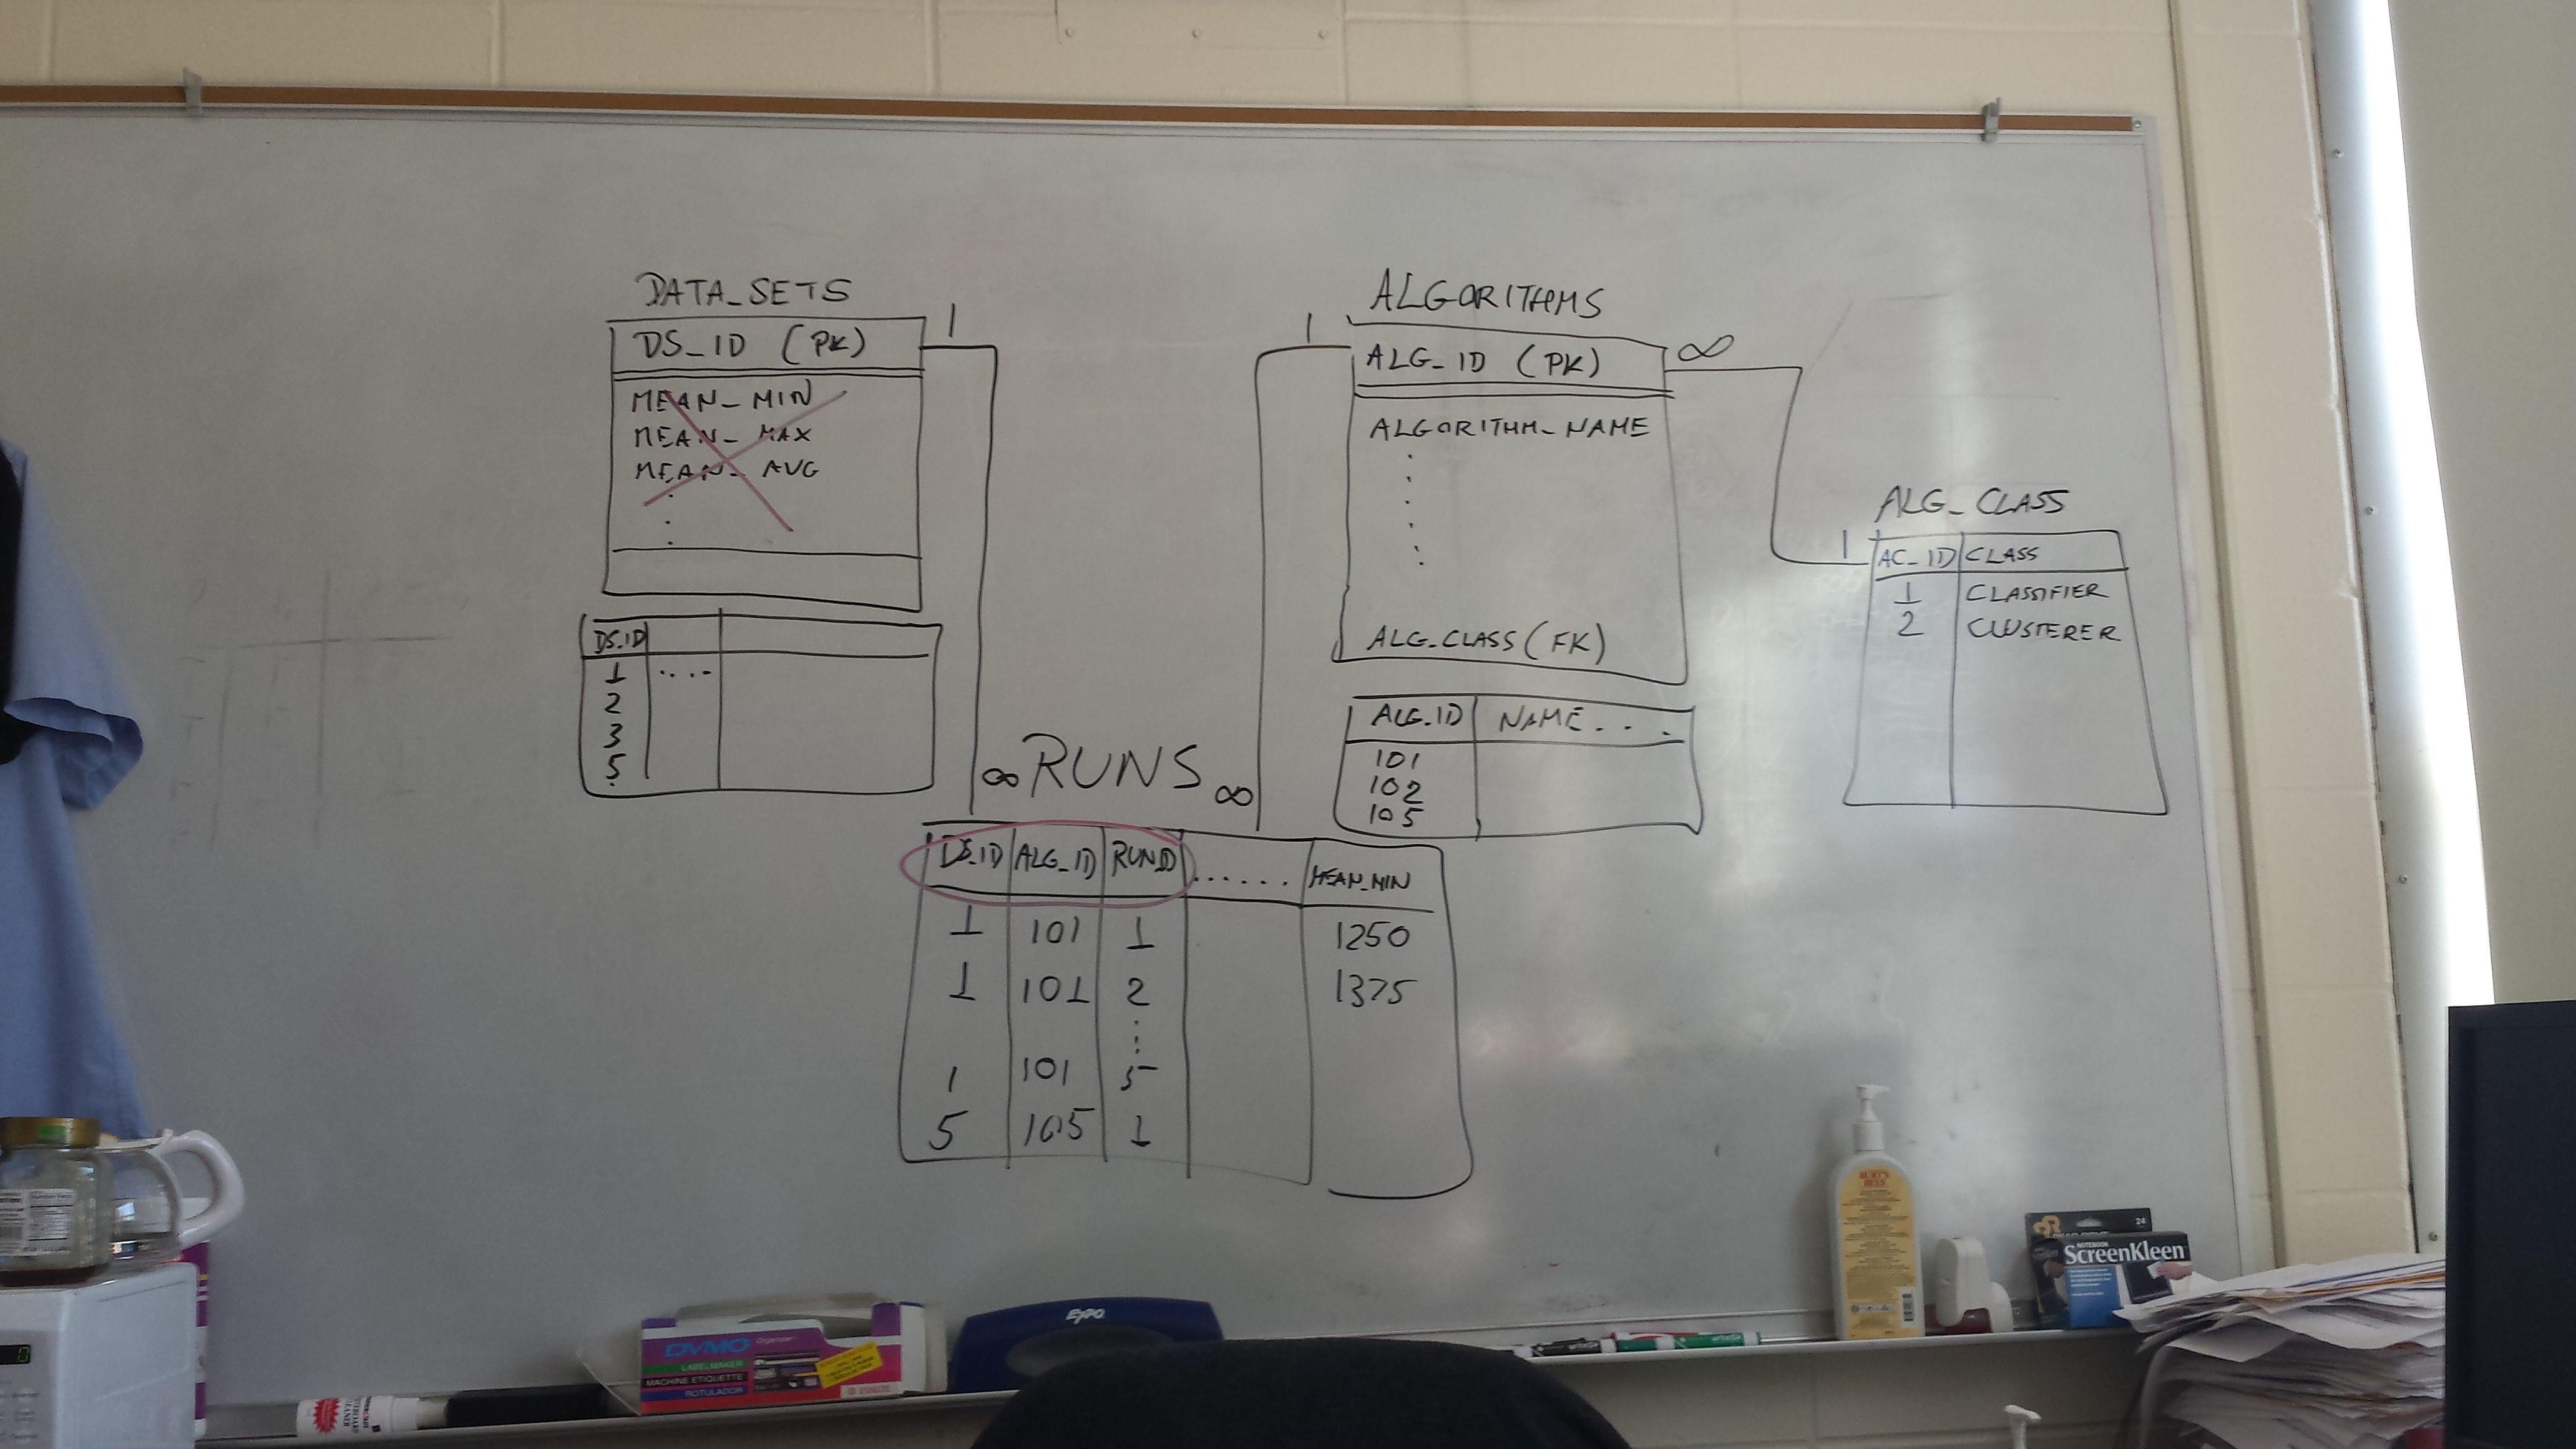 DATA_SETS
DS_ID (PK)
MEAN_MIN
MEAN_MAX
MEAN_AVG
DS_ID
1 ....
2
3
5
ALGORITHMS
ALG_ID (PK)
ALGORITHM_NAME
ALG_CLASS (FK)
ALG_ID NAME . . .
101
102
105
ALG_CLASS
AC_ID CLASS
1 CLASSIFIER
2 CLUSTERER
1
1
∞
1
∞ RUNS ∞
DS_ID ALG_ID RUN_ID ...... MEAN_MIN
1 101 1 1250
1 101 2 1375
1 101 5
5 105 1
DYMO
Organizer
LABELMAKER
MACHINE ETIQUETTE
ROTULADOR
EXPO
BURT'S
BEES
24
NOTEBOOK
ScreenKleen